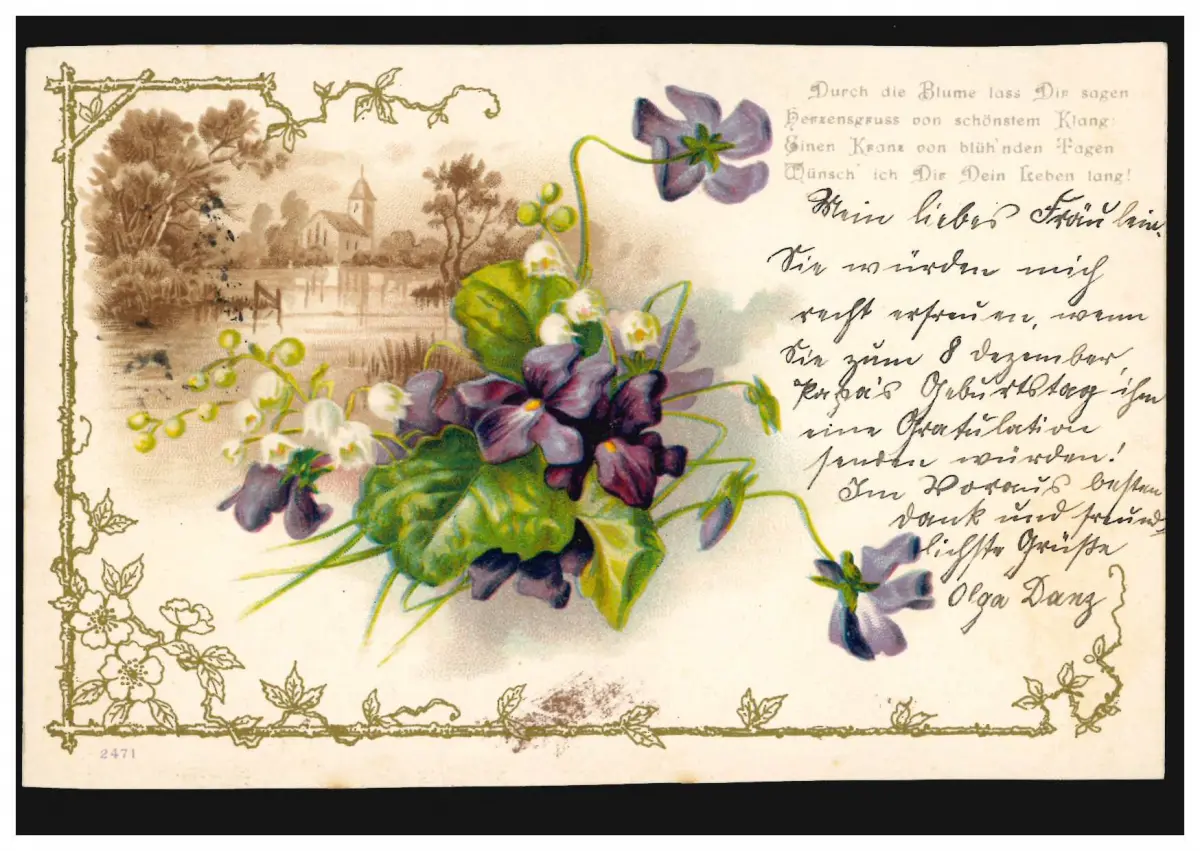 Durch die Blume lass Dir sagen
Herzensgruss von schönstem Klang:
Einen Kranz von blüh'nden Tagen
Wünsch' ich Dir Dein Leben lang!
Mein liebes Fräulein.
Sie würden mich
recht erfreuen, wenn
Sie zum 8 Dezember,
Papa's Geburtstag ihm
eine Gratulation
senden würden!
Im Voraus besten
Dank und freund-
lichste Grüße
Olga Danz
2471